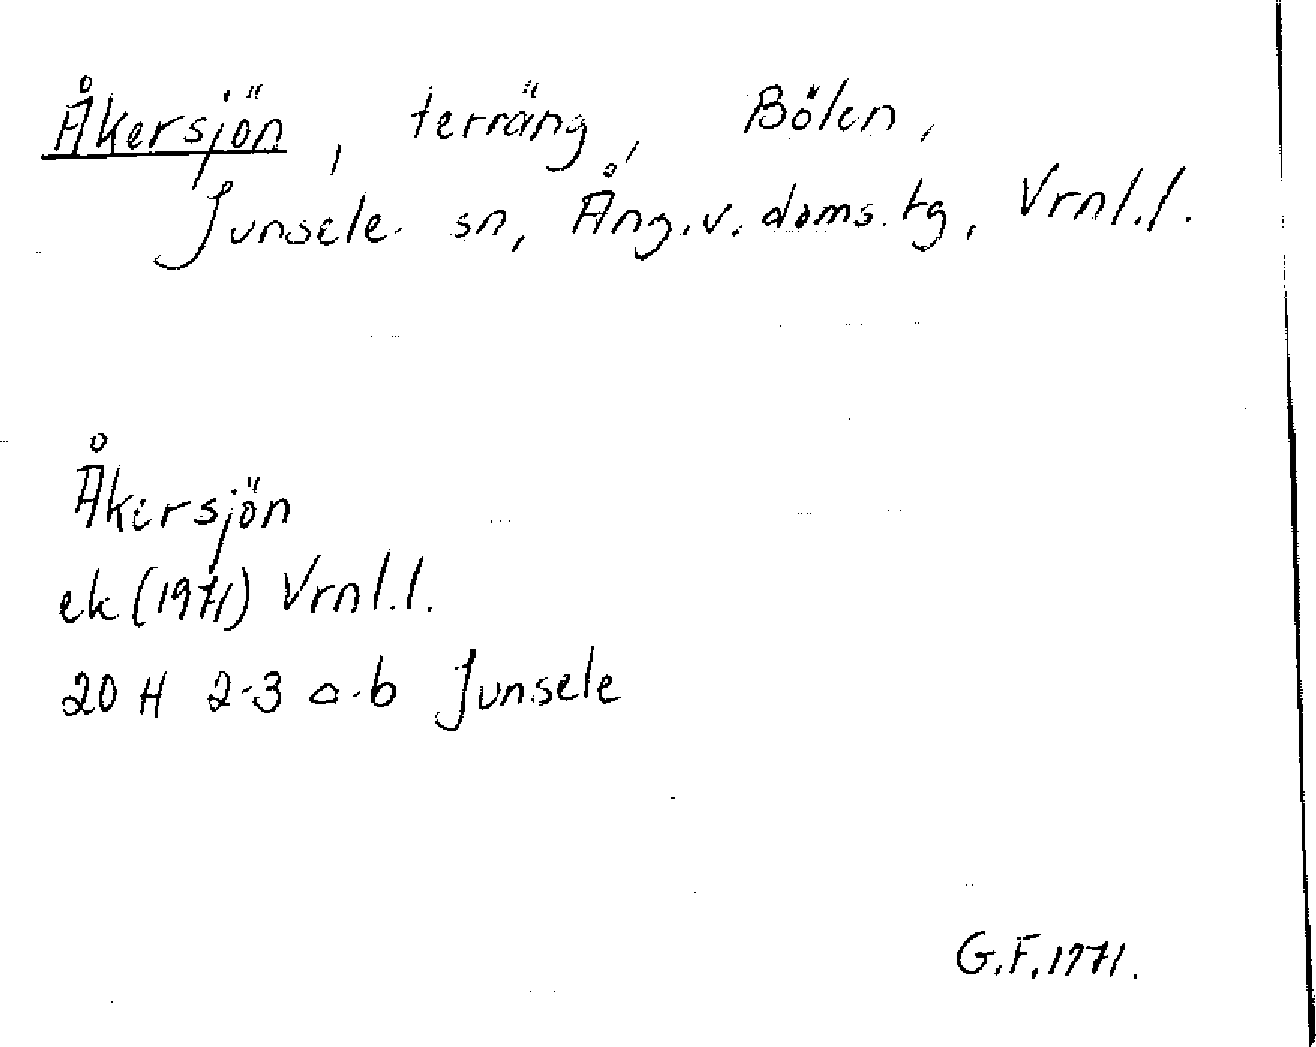 Åkersjön, terräng, Bölen,
Junsele sn, Ång.v. doms.tg, Vrnl.l.
Åkersjön
ek (1971) Vrnl.l.
20 H 2-3 a-b Junsele
G.F. 1971.